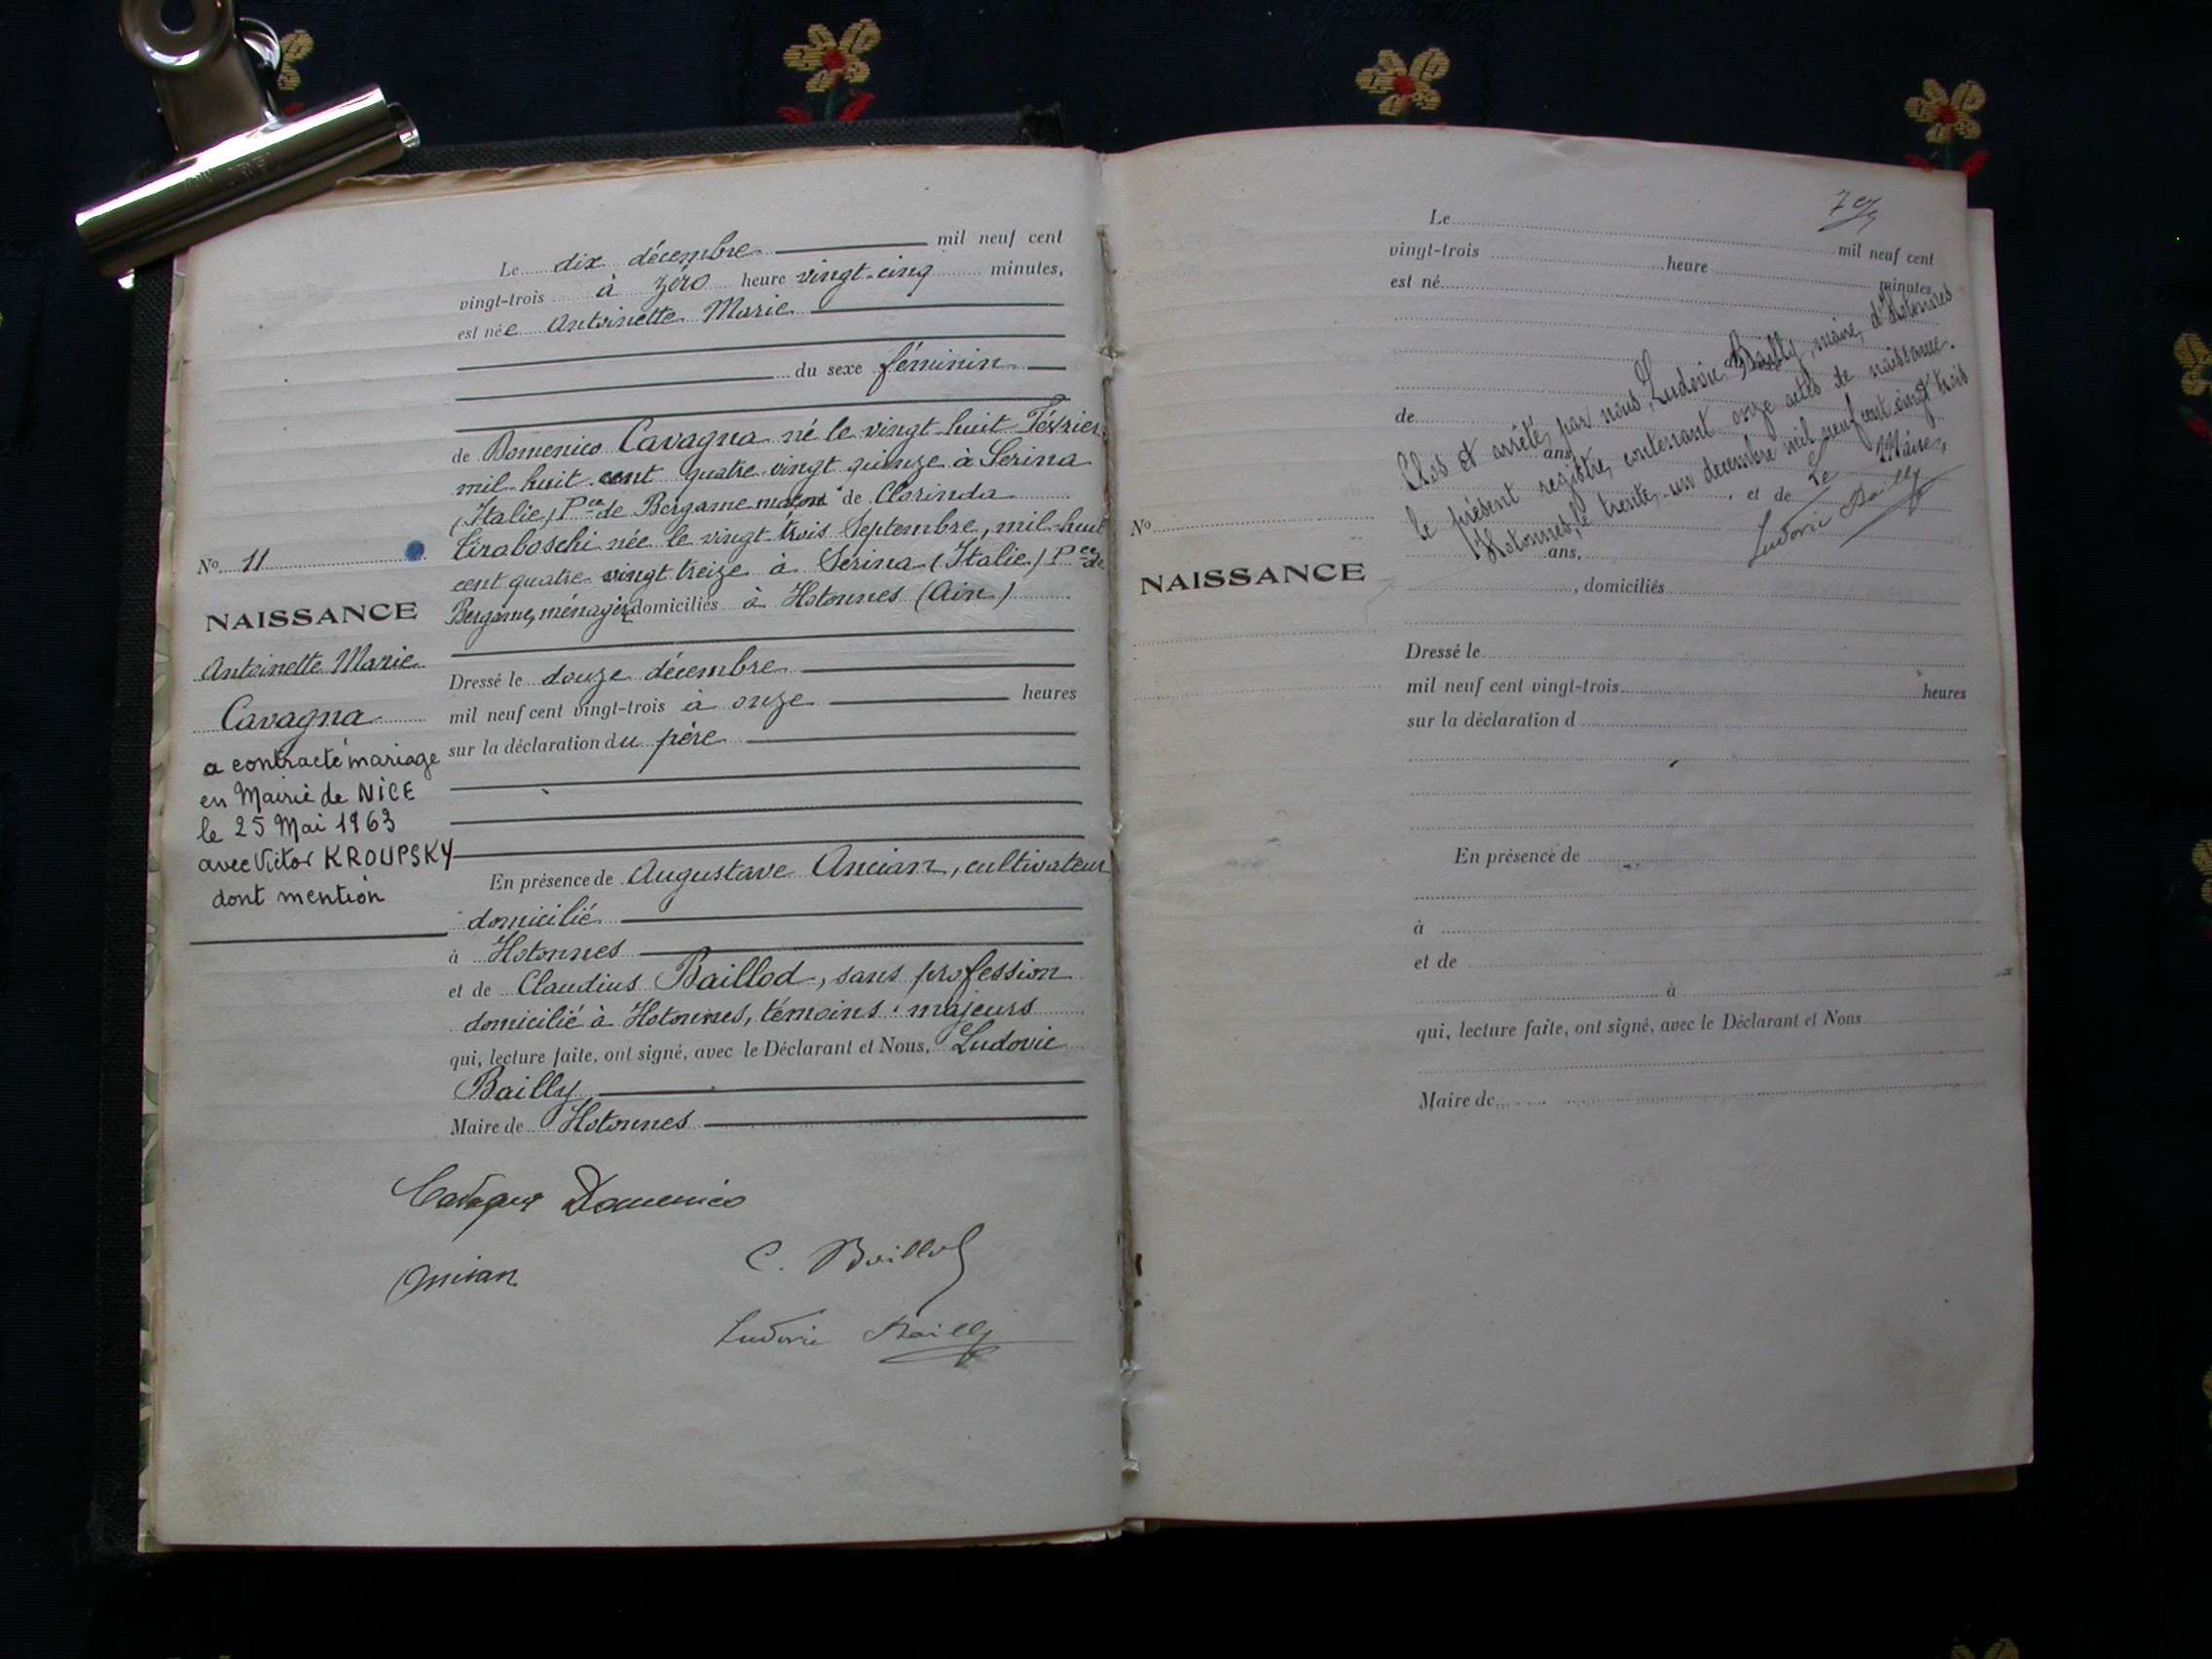 Le dix décembre mil neuf cent
vingt-trois à zéro heure vingt-cinq minutes,
est née Antoinette Marie
du sexe féminin
de Domenico Cavagna né le vingt-huit Février
mil-huit-cent quatre vingt quinze à Serina
(Italie) Pce de Bergame maçon de Clorinda
Tiraboschi née le vingt trois Septembre, mil-huit
cent quatre vingt treize à Serina (Italie) Pce de
Bergame, ménagère domiciliés à Hotonnes (Ain)
Dressé le douze décembre
mil neuf cent vingt-trois à onze heures
sur la déclaration du père
En présence de Augustave Ancian, cultivateur
domicilié
à Hotonnes
et de Claudius Baillod, sans profession
domicilié à Hotonnes, témoins majeurs
qui, lecture faite, ont signé, avec le Déclarant et Nous, Ludovic
Bailly
Maire de Hotonnes
Cavagna Domenico
Ancian
C. Baillod
Ludovic Bailly
No 11
NAISSANCE
Antoinette Marie
Cavagna
a contracté mariage
en Mairie de NICE
le 25 Mai 1963
avec Victor KROUPSKY
dont mention
Le mil neuf cent
vingt-trois heure minutes,
est né
de
ans,
, et de
ans,
, domiciliés
Clos et arrêté, par nous, Ludovic Bailly, maire, d'Hotonnes
le présent registre, contenant onze actes de naissance.
Hotonnes, le trente-un décembre mil neuf cent vingt trois
Le Maire,
Ludovic Bailly
No
NAISSANCE
Dressé le
mil neuf cent vingt-trois heures
sur la déclaration d
En présence de
à
et de
à
qui, lecture faite, ont signé, avec le Déclarant et Nous
Maire de